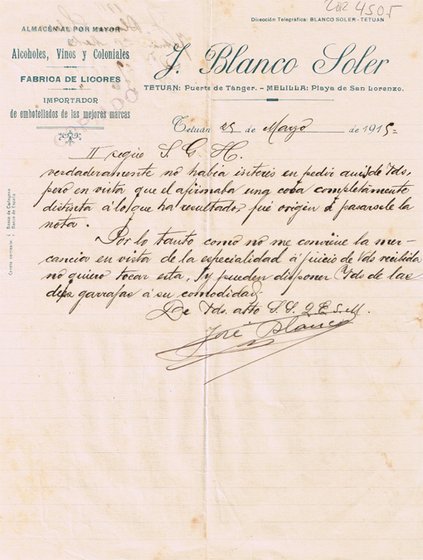 202 4505
Dirección Telegráfica: BLANCO SOLER - TETUAN
ALMACÉN AL POR MAYOR
Alcoholes, Vinos y Coloniales
FABRICA DE LICORES
IMPORTADOR
de embotellados de las mejores marcas
J. Blanco Soler
TETUAN: Puerta de Tánger. - MELILLA: Playa de San Lorenzo.
Tetuán 25 de Mayo de 1915
II S. G. H.
verdaderamente no habia interés en pedir Vds,
pero en vista que el afirmaba una cosa completamente
distinta á lo que ha resultado, fué origen á pasarsele la
nota.
Por lo tanto como no me conviene la mer-
cancia en vista de la especialidad á juicio de Vds recibida
no quiero tocar esta, y pueden disponer Vds de las
diez garrafas á su comodidad
De Vds atto S. S. Q. B. S. M.
José Blanco